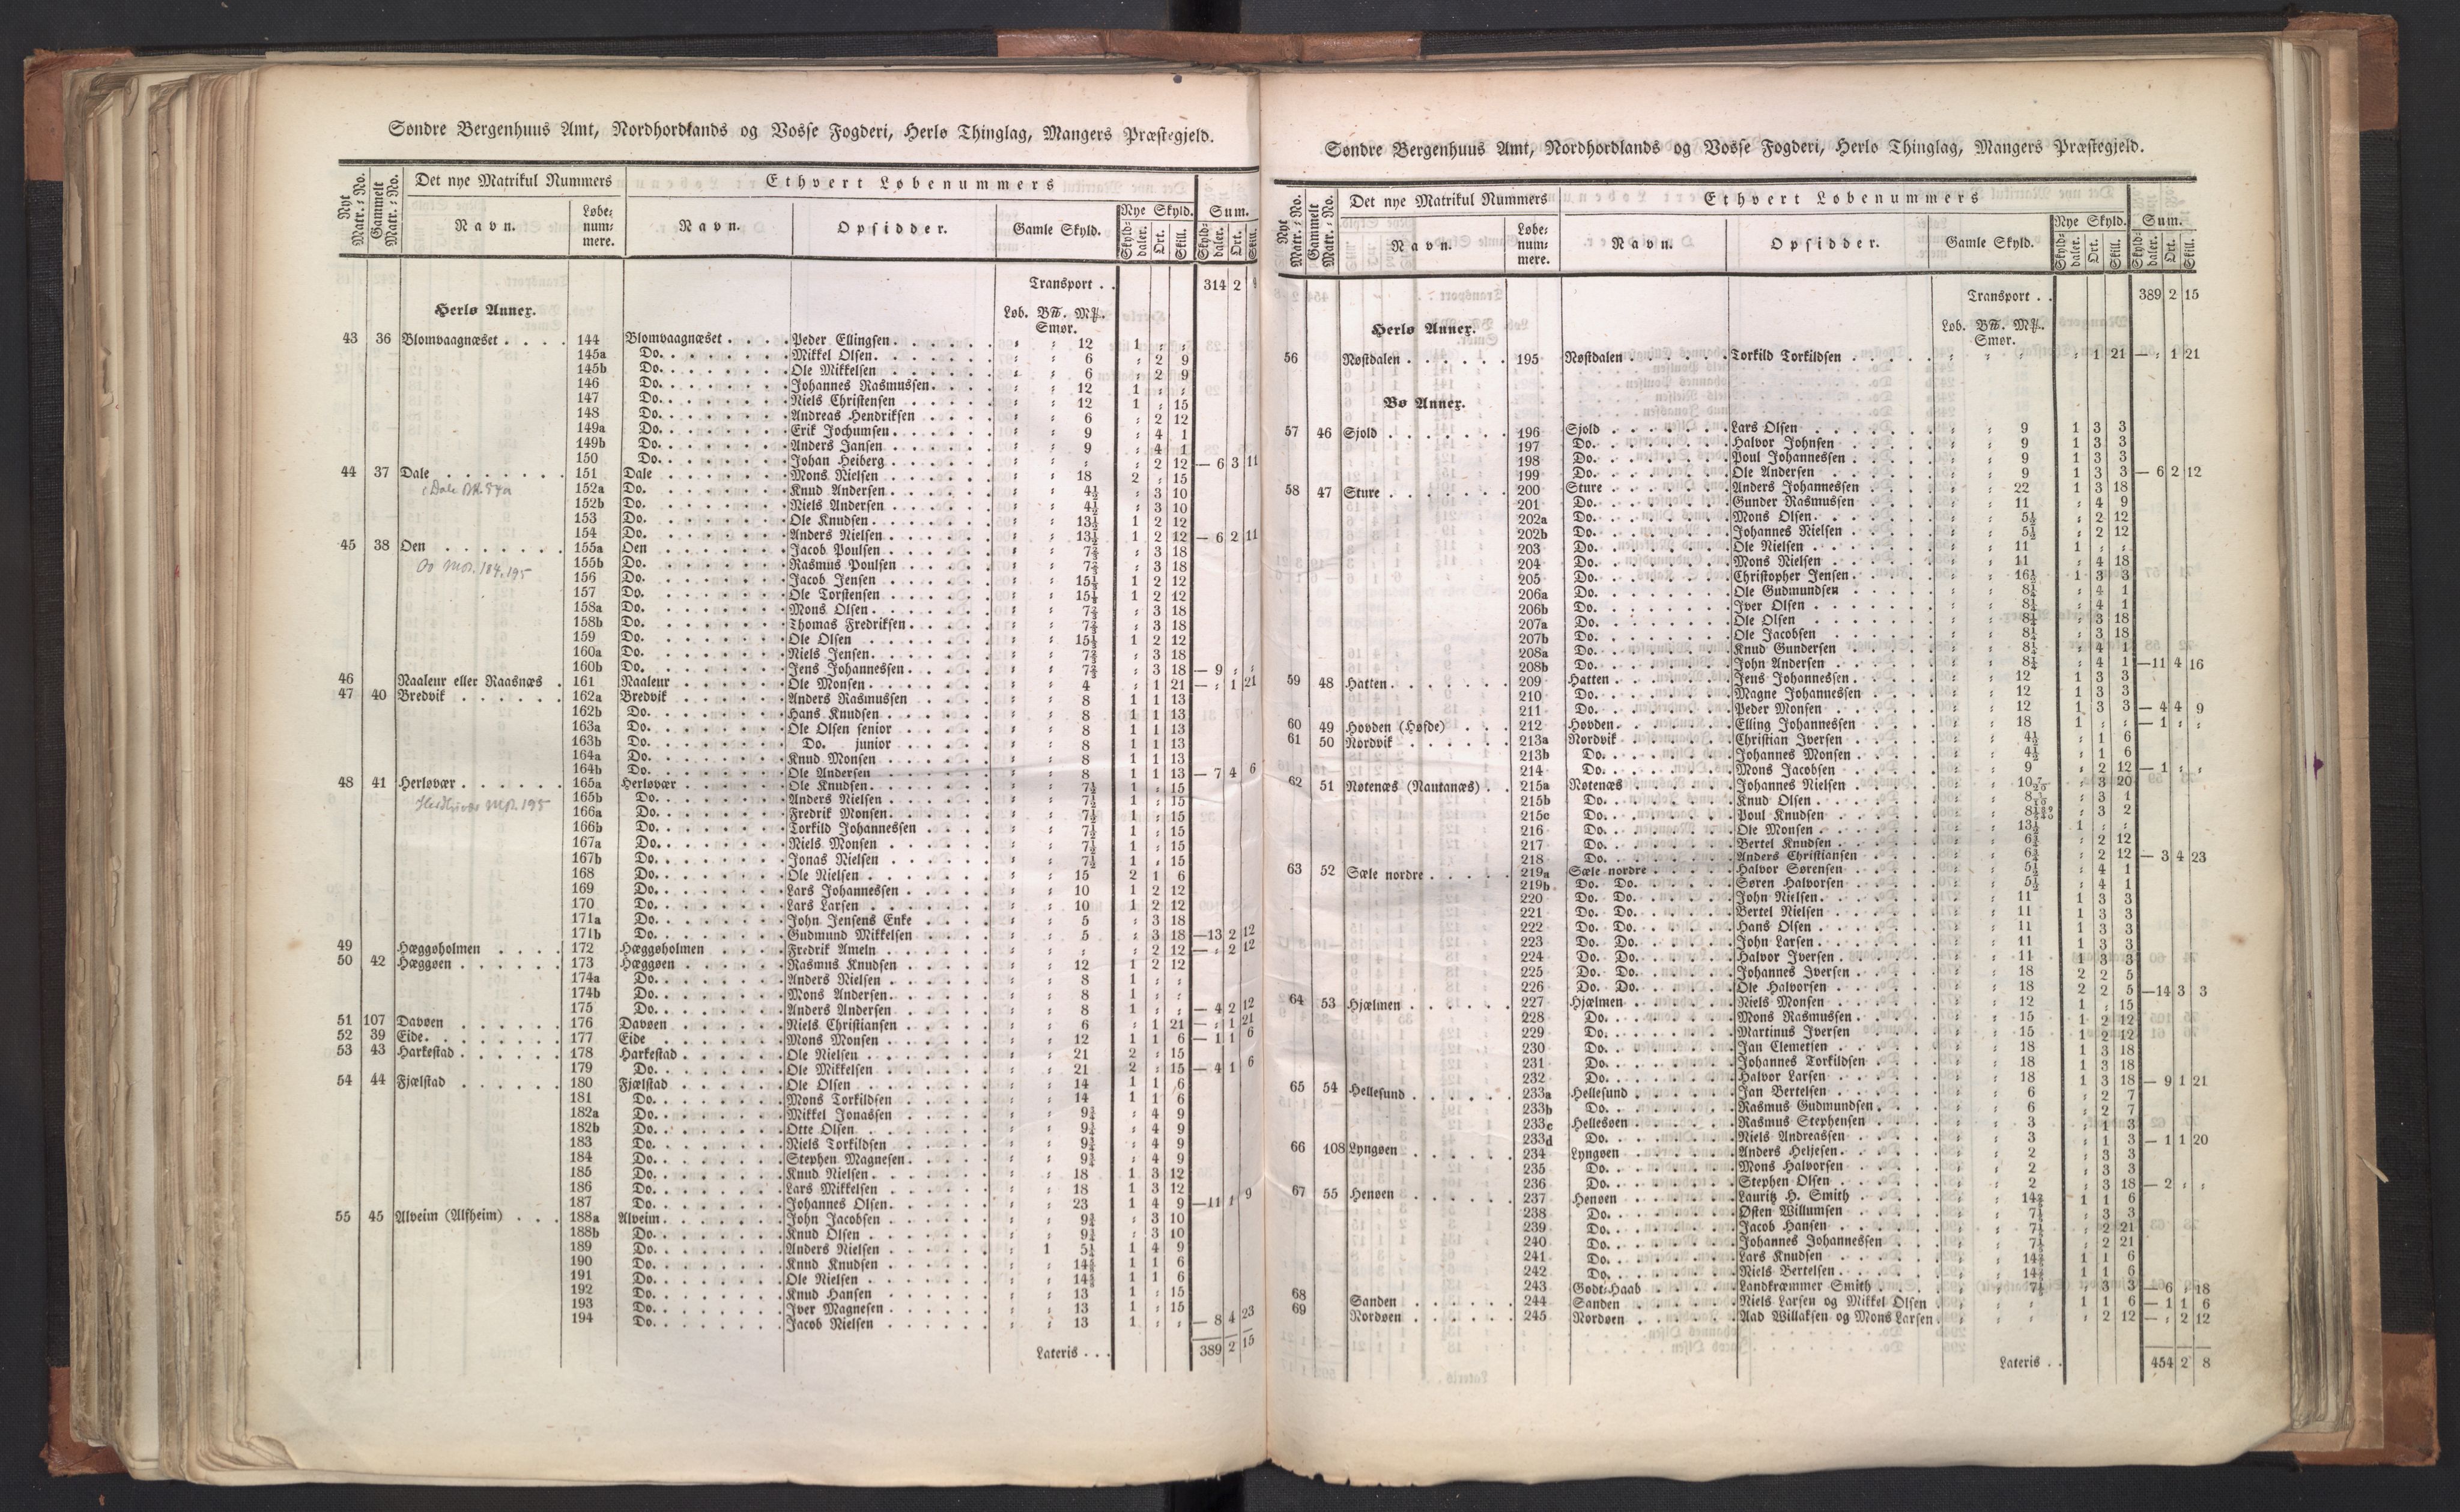 Søndre Bergenhuus Amt, Nordhordlands og Vosse Fogderi, Herlø Thinglag, Mangers Præstegjeld.
Nye Matr.-No. Gammelt Matr.-No. Det nye Matrikul Nummers Ethvert Løbenummers
Navn. Løbe-nummere. Navn. Opsidder. Gamle Skyld. Nye Skyld. Sum.
Skylddaler. Ort. Skill. Skylddaler. Ort. Skill.
Transport . . 314 2
Herlø Annex. Løb. B℔. M℔.
Smør.
43 36 Blomvaagnæset . . . . 144 Blomvaagnæset . . . . Peder Ellingsen . . . . . . " " 12 1 " "
145a Do. . . . . . . Mikkel Olsen. . . . . . . " " 6 " 2 9
145b Do. . . . . . . Ole Mikkelsen . . . . . . " " 6 " 2 9
146 Do. . . . . . . Johannes Rasmussen. . . . " " 12 1 " "
147 Do. . . . . . . Niels Christensen . . . . . " " 12 1 " 15
148 Do. . . . . . . Andreas Hendriksen . . . . " " 6 " 2 12
149a Do. . . . . . . Erik Jochumsen. . . . . . " " 9 " 4 1
149b Do. . . . . . . Anders Jansen. . . . . . " " 9 " 4 1
150 Do. . . . . . . Johan Heiberg . . . . . . " " " " 2 12 — 6 3 11
44 37 Dale . . . . . . . 151 Dale . . . . . . . Mons Nielsen . . . . . . " " 18 2 " 15
152a Do. . . . . . . Knud Andersen. . . . . . " " 4½ " 3 10
152b Do. . . . . . . Niels Andersen . . . . . . " " 4½ " 3 10
153 Do. . . . . . . Ole Knudsen. . . . . . . " " 13½ 1 2 12
154 Do. . . . . . . Anders Nielsen. . . . . . " " 13½ 1 2 12 — 6 2 11
45 38 Øen . . . . . . . 155a Øen . . . . . . . Jacob Poulsen. . . . . . " " 7⅔ " 3 18
155b Do. . . . . . . Rasmus Poulsen . . . . . " " 7⅔ " 3 18
156 Do. . . . . . . Jacob Jensen . . . . . . " " 15⅓ 1 2 12
157 Do. . . . . . . Ole Torstensen . . . . . . " " 15⅓ 1 2 12
158a Do. . . . . . . Mons Olsen. . . . . . . " " 7⅔ " 3 18
158b Do. . . . . . . Thomas Fredriksen. . . . . " " 7⅔ " 3 18
159 Do. . . . . . . Ole Olsen . . . . . . . " " 15⅓ 1 2 12
160a Do. . . . . . . Niels Jensen. . . . . . . " " 7⅔ " 3 18
160b Do. . . . . . . Jens Johannessen. . . . . " " 7⅔ " 3 18 — 9 " "
46 Raaleur eller Raasnæs . 161 Raaleur . . . . . . Ole Monsen. . . . . . . " " 4 " 1 21 — " 1 21
47 40 Bredvik . . . . . . 162a Bredvik . . . . . . Anders Rasmussen . . . . " " 8 1 1 13
162b Do. . . . . . . Hans Knudsen . . . . . . " " 8 1 1 13
163a Do. . . . . . . Ole Olsen senior . . . . . " " 8 1 1 13
163b Do. . . . . . . Do. junior . . . . . " " 8 1 1 13
164a Do. . . . . . . Knud Monsen . . . . . . " " 8 1 1 13
164b Do. . . . . . . Ole Andersen . . . . . . " " 8 1 1 13 — 7 4 6
48 41 Herløvær . . . . . . 165a Herløvær . . . . . . Ole Knudsen. . . . . . . " " 7½ 1 " 15
165b Do. . . . . . . Anders Nielsen . . . . . . " " 7½ 1 " 15
166a Do. . . . . . . Fredrik Monsen. . . . . . " " 7½ 1 " 15
166b Do. . . . . . . Torkild Johannessen . . . . " " 7½ 1 " 15
167a Do. . . . . . . Niels Monsen . . . . . . " " 7½ 1 " 15
167b Do. . . . . . . Jonas Nielsen . . . . . . " " 7½ 1 " 15
168 Do. . . . . . . Ole Nielsen . . . . . . . " " 15 2 1 6
169 Do. . . . . . . Lars Johannessen . . . . . " " 10 1 2 12
170 Do. . . . . . . Lars Larsen . . . . . . . " " 10 1 2 12
171a Do. . . . . . . John Jensens Enke . . . . " " 5 " 3 18
171b Do. . . . . . . Gudmund Mikkelsen . . . . " " 5 " 3 18 —13 2 12
49 Hæggøholmen . . . . 172 Hæggøholmen . . . . Fredrik Ameln . . . . . . " " " " 2 12 — " 2 12
50 42 Hæggøen . . . . . . 173 Hæggøen . . . . . . Rasmus Knudsen . . . . . " " 12 1 2 12
174a Do. . . . . . . Anders Nielsen . . . . . . " " 8 1 " "
174b Do. . . . . . . Mons Andersen. . . . . . " " 8 1 " "
175 Do. . . . . . . Anders Andersen . . . . . " " 8 1 " " — 4 2 12
51 107 Davøen . . . . . . 176 Davøen . . . . . . Niels Christiansen . . . . . " " 6 " 1 21 — " 1 21
52 39 Eide. . . . . . . 177 Eide . . . . . . . Mons Monsen . . . . . . " " 12 1 1 6 — 1 1 6
53 43 Harkestad . . . . . . 178 Harkestad . . . . . . Ole Nielsen . . . . . . . " " 21 2 " 15
179 Do. . . . . . . Ole Mikkelsen . . . . . . " " 21 2 " 15 — 4 1 6
54 44 Fjælstad . . . . . . 180 Fjælstad . . . . . . Ole Olsen . . . . . . . " " 14 1 1 6
181 Do. . . . . . . Mons Torkildsen . . . . . " " 14 1 1 6
182a Do. . . . . . . Mikkel Jonassen . . . . . " " 9¼ " 4 9
182b Do. . . . . . . Otte Olsen . . . . . . . " " 9¼ " 4 9
183 Do. . . . . . . Niels Torkildsen . . . . . " " 9¼ " 4 9
184 Do. . . . . . . Stephen Magnesen. . . . . " " 9¼ " 4 9
185 Do. . . . . . . Knud Nielsen. . . . . . . " " 18 1 3 12
186 Do. . . . . . . Lars Mikkelsen . . . . . . " " 18 1 3 12
187 Do. . . . . . . Johannes Olsen. . . . . . " " 23 1 4 9 —11 1 9
55 45 Alveim (Alfheim) . . . 188a Alveim. . . . . . . John Jacobsen . . . . . . " " 9¾ " 3 10
188b Do. . . . . . . Knud Olsen . . . . . . . " " 9¾ " 3 10
189 Do. . . . . . . Anders Nielsen . . . . . . " 1 5¼ 1 4 9
190 Do. . . . . . . Knud Knudsen . . . . . . " " 1 1 6
191 Do. . . . . . . Ole Nielsen . . . . . . . " " 1 1 6
192 Do. . . . . . . Knud Hansen . . . . . . " " 13 1 " 15
193 Do. . . . . . . Iver Magnesen . . . . . . " " 13 1 " 15
194 Do. . . . . . . Jacob Nielsen . . . . . . " " 13 1 " " — 8 4 23
Lateris . . . 389 2 15
Søndre Bergenhuus Amt, Nordhordlands og Vosse Fogderi, Herlø Thinglag, Mangers Præstegjeld.
Nye Matr.-No. Gammelt Matr.-No. Det nye Matrikul Nummers Ethvert Løbenummers
Navn. Løbe-nummere. Navn. Opsidder. Gamle Skyld. Nye Skyld. Sum.
Skylddaler. Ort. Skill. Skylddaler. Ort. Skill.
Transport . . 389 2 15
Herlø Annex. Løb. B℔. M℔.
Smør.
56 Nøstdalen . . . . . . 195 Nøstdalen . . . . . . Torkild Torkildsen . . . . . " " " " 1 21 — " 1 21
Bø Annex.
57 46 Sjold . . . . . . . 196 Sjold . . . . . . . Lars Olsen . . . . . . . " " 9 1 3 3
197 Do. . . . . . . Halvor Johnsen . . . . . . " " 9 1 3 3
198 Do. . . . . . . Poul Johannessen . . . . . " " 9 1 3 3
199 Do. . . . . . . Ole Andersen . . . . . . " " 9 1 3 3 — 6 2 12
58 47 Sture . . . . . . . 200 Sture . . . . . . . Anders Johannessen . . . . " " 22 1 3 18
201 Do. . . . . . . Gunder Rasmussen . . . . " " 11 " 4 9
202a Do. . . . . . . Mons Olsen. . . . . . . " " 5½ " 2 12
202b Do. . . . . . . Johannes Nielsen . . . . . " " 5½ " 2 12
203 Do. . . . . . . Ole Nielsen . . . . . . . " " 11 1 " "
204 Do. . . . . . . Mons Nielsen . . . . . . " " 11 " 4 18
205 Do. . . . . . . Christopher Jensen. . . . . " " 16½ 1 3 3
206a Do. . . . . . . Ole Gudmundsen . . . . . " " 8¼ " 4 1
206b Do. . . . . . . Iver Olsen . . . . . . . " " 8¼ " 4 1
207a Do. . . . . . . Ole Olsen . . . . . . . " " 8¼ " 3 18
207b Do. . . . . . . Ole Jacobsen . . . . . . " " 8¼ " 3 18
208a Do. . . . . . . Knud Gundersen . . . . . " " 8¼ " 4 1
208b Do. . . . . . . John Andersen . . . . . . " " 8¼ " 4 1 —11 4 16
59 48 Hatten. . . . . . . 209 Hatten . . . . . . . Jens Johannessen. . . . . " " 12 1 3 3
210 Do. . . . . . . Magne Johannessen . . . . " " 12 1 3 3
211 Do. . . . . . . Peder Monsen . . . . . . " " 12 1 3 3 — 4 4 9
60 49 Hovden (Høfde) . . . 212 Hovden. . . . . . . Elling Johannessen . . . . " " 18 1 " " — 1 " "
61 50 Nordvik . . . . . . 213a Nordvik . . . . . . Christian Iversen . . . . . " " 4½ " 1 6
213b Do. . . . . . . Johannes Monsen . . . . . " " 4½ " 1 6
214 Do. . . . . . . Mons Jacobsen . . . . . . " " 9 " 2 12 — 1 " "
62 51 Nøtenæs (Nautanæs) . . 215a Nøtenæs . . . . . . Johannes Nielsen . . . . . " " " 3 20
215b Do. . . . . . . Knud Olsen . . . . . . . " " " 3 1
215c Do. . . . . . . Poul Knudsen . . . . . . " " " 3 2
216 Do. . . . . . . Ole Monsen . . . . . . . " " 13½ 1 " "
217 Do. . . . . . . Bertel Knudsen . . . . . . " " 6¾ " 2 12
218 Do. . . . . . . Anders Christiansen . . . . " " 6¾ " 2 12 — 3 4 23
63 52 Sæle nordre . . . . . 219a Sæle nordre . . . . . Halvor Sørensen . . . . . " " 5½ " 4 1
219b Do. Do. . . . . . Søren Halvorsen . . . . . " " 5½ " 4 1
220 Do. Do. . . . . . John Nielsen. . . . . . . " " 11 1 3 3
221 Do. Do. . . . . . Bertel Nielsen . . . . . . " " 11 1 3 3
222 Do. Do. . . . . . Hans Olsen . . . . . . . " " 11 1 3 3
223 Do. Do. . . . . . John Larsen . . . . . . . " " 11 1 3 3
224 Do. Do. . . . . . Halvor Iversen . . . . . . " " 11 1 3 3
225 Do. Do. . . . . . Johannes Iversen . . . . . " " 18 2 2 5
226 Do. Do. . . . . . Ole Halvorsen . . . . . . " " 18 2 2 5 —14 3 3
64 53 Hjælmen . . . . . . 227 Hjælmen . . . . . . Niels Monsen . . . . . . " " 12 1 " 15
228 Do. . . . . . . Mons Rasmussen. . . . . . " " 15 1 2 12
229 Do. . . . . . . Martinus Iversen . . . . . " " 15 1 2 12
230 Do. . . . . . . Jan Clemetsen . . . . . . " " 18 1 3 18
231 Do. . . . . . . Johannes Torkildsen . . . . " " 18 1 3 18
232 Do. . . . . . . Halvor Larsen . . . . . . " " 18 1 3 18 — 9 1 21
65 54 Hellesund . . . . . . 233a Hellesund . . . . . . Jan Bertelsen . . . . . . " " 6 " 2 7
233b Do. . . . . . . Rasmus Gudmundsen. . . . " " 6 " 2 7
233c Hellesøen . . . . . . Rasmus Stephensen . . . . " " 3 " 1 3
233d Do. . . . . . . Niels Andreassen . . . . . " " 3 " 1 3 — 1 1 20
66 108 Lyngøen . . . . . . 234 Lyngøen . . . . . . Anders Heljesen . . . . . " " 2 " 3 3
235 Do. . . . . . . Mons Halvorsen . . . . . " " 2 " 3 3
236 Do. . . . . . . Stephen Olsen . . . . . . " " 2 " 3 18 — 2 " "
67 55 Henøen . . . . . . 237 Henøen . . . . . . Lauritz H. Smith . . . . . " " 1 1 6
238 Do. . . . . . . Østen Willumsen . . . . . " " " 3 3
239 Do. . . . . . . Jacob Hansen . . . . . . " " " 2 21
240 Do. . . . . . . Johannes Johannessen . . . " " " 2 21
241 Do. . . . . . . Lars Knudsen . . . . . . " " 1 1 6
242 Do. . . . . . . Niels Bertelsen . . . . . . " " 1 1 6
243 Godt-Haab . . . . . Landkræmmer Smith . . . . " " " 3 3 — 6 " 18
68 Sanden . . . . . . 244 Sanden . . . . . . Niels Larsen og Mikkel Olsen . " " " 1 1 6 — 1 1 6
69 Nordøen . . . . . . 245 Nordøen . . . . . . Aad Willaksen og Mons Larsen . " " " " 2 12 — " 2 12
Lateris . . 454 2 8